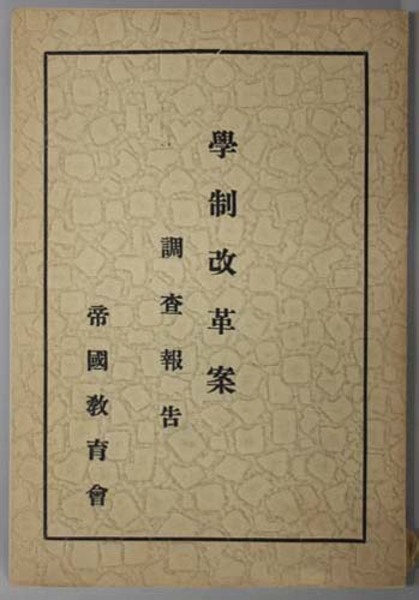 學制改革案
調査報告
帝國教育會